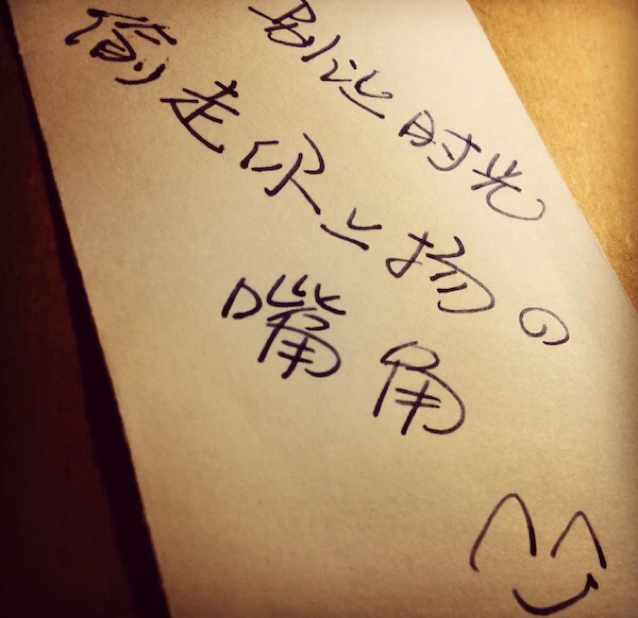 别让时光
偷走你上扬の
嘴角